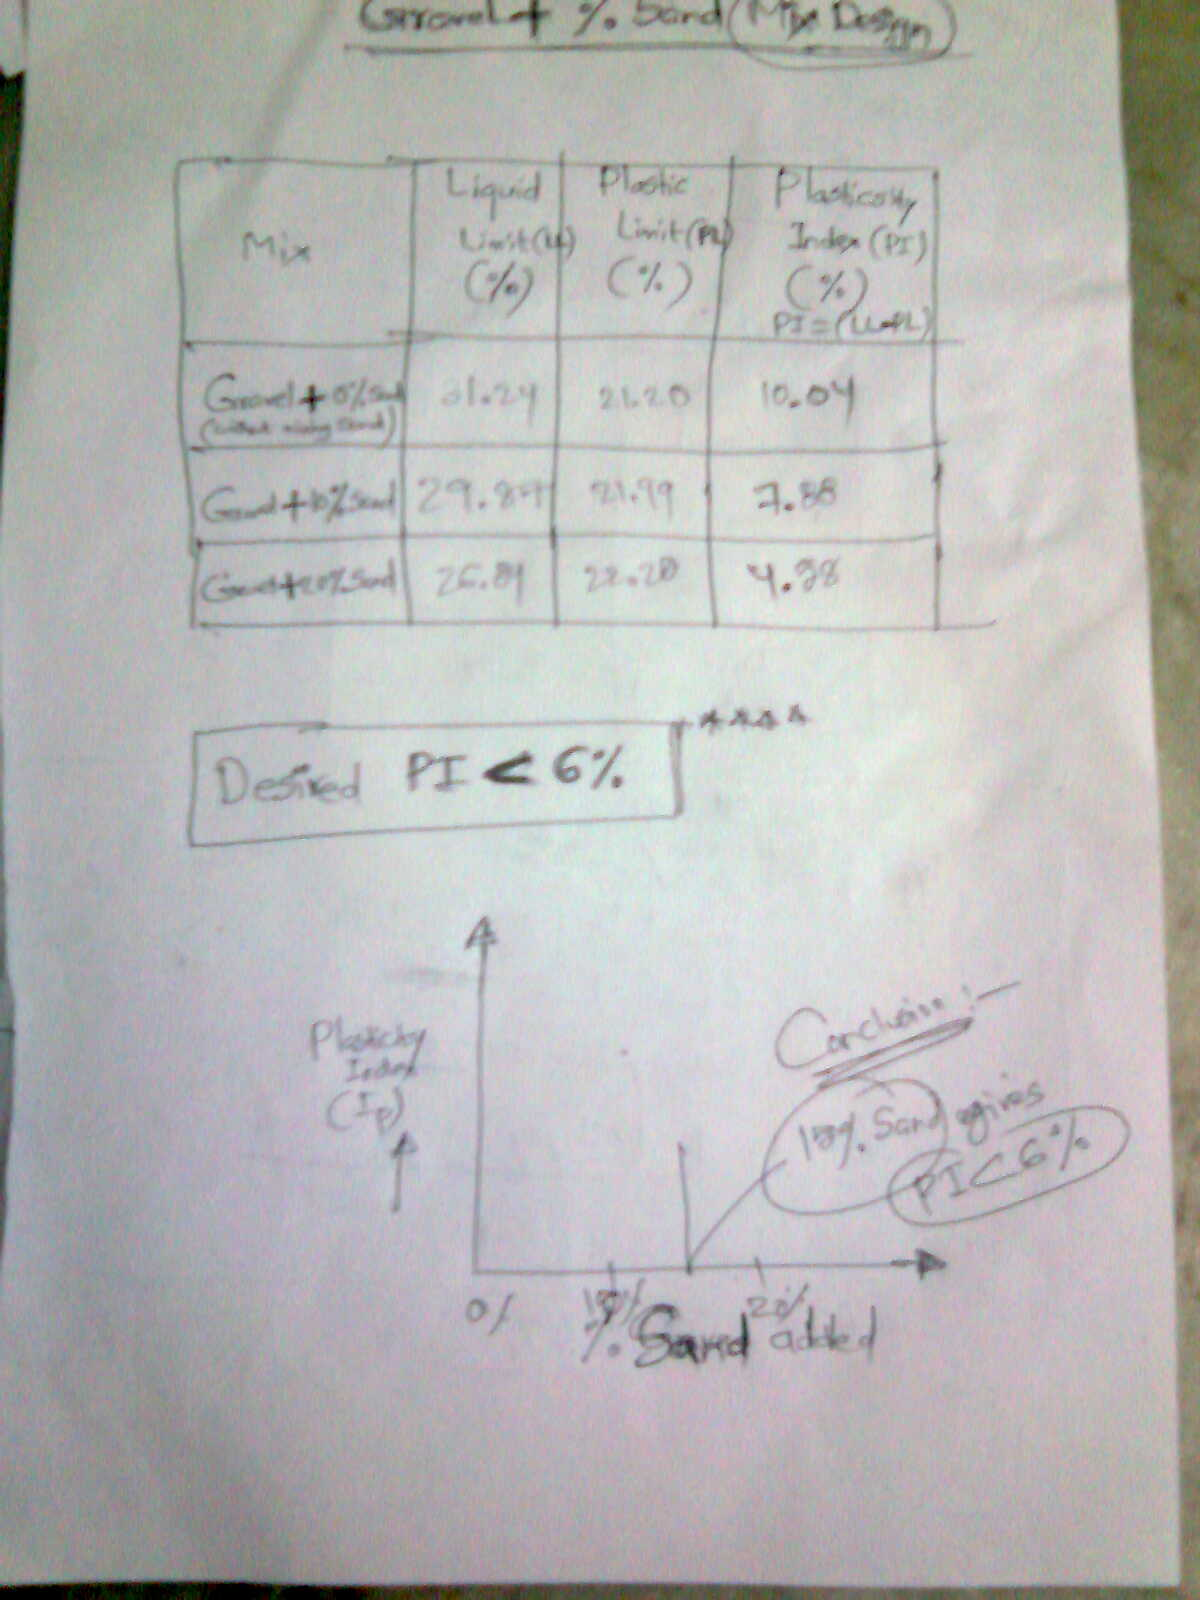 Gravel + % Sand (Mix Design)
Mix
Liquid
Limit (LL)
(%)
Plastic
Limit (PL)
(%)
Plasticity
Index (PI)
(%)
PI = (LL-PL)
Gravel + 0% Sand
(without mixing Sand)
31.24
21.20
10.04
Gravel + 10% Sand
29.87
21.99
7.88
Gravel + 20% Sand
22.20
Desired PI < 6%
****
Plasticity
Index
(Ip)
Conclusion :-
Sand gives
PI < 6%
0%
10%
20%
% Sand added